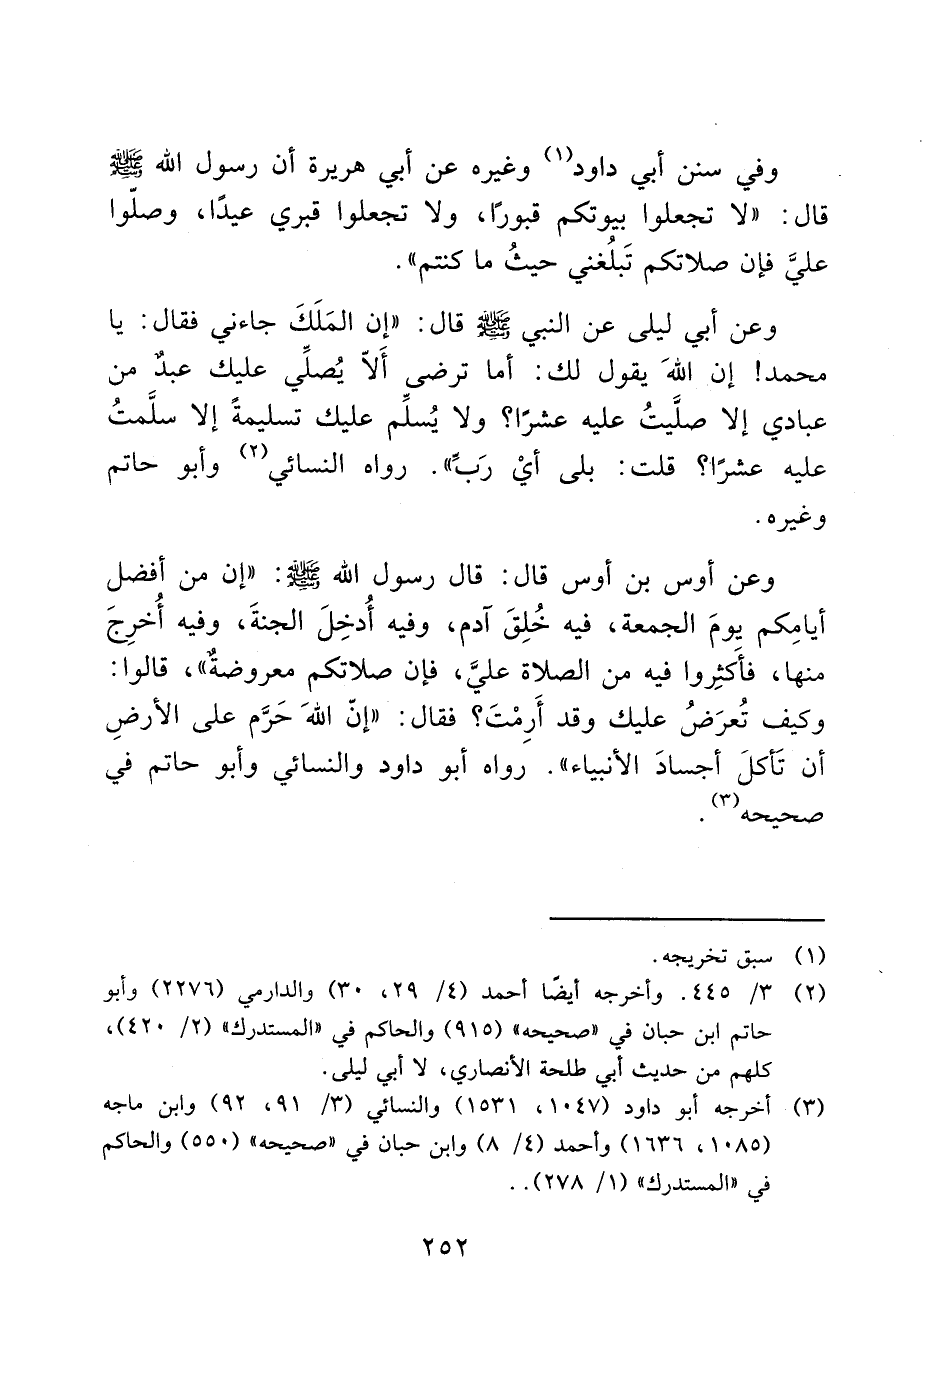 وفي سنن أبي داود(١) وغيره عن أبي هريرة أن رسول الله ﷺ
قال: «لا تجعلوا بيوتكم قبورًا، ولا تجعلوا قبري عيدًا، وصلّوا
عليَّ فإن صلاتكم تَبلُغني حيثُ ما كنتم».
وعن أبي ليلى عن النبي ﷺ قال: «إن المَلَكَ جاءني فقال: يا
محمد! إن اللهَ يقول لك: أما ترضى أَلاّ يُصلِّي عليك عبدٌ من
عبادي إلا صلَّيتُ عليه عشرًا؟ ولا يُسلِّم عليك تسليمةً إلا سلَّمتُ
عليه عشرًا؟ قلت: بلى أيْ رَبِّ». رواه النسائي(٢) وأبو حاتم
وغيره.
وعن أوس بن أوس قال: قال رسول الله ﷺ: «إن من أفضل
أيامِكم يومَ الجمعة، فيه خُلِقَ آدم، وفيه أُدخِلَ الجنةَ، وفيه أُخرِجَ
منها، فأَكثِروا فيه من الصلاة عليَّ، فإن صلاتكم معروضةٌ»، قالوا:
وكيف تُعرَضُ عليك وقد أَرِمْتَ؟ فقال: «إنّ اللهَ حَرَّم على الأرضِ
أن تَأكلَ أجسادَ الأنبياء». رواه أبو داود والنسائي وأبو حاتم في
صحيحه(٣).
(١) سبق تخريجه.
(٢) ٣/ ٤٤٥. وأخرجه أيضًا أحمد (٤/ ٢٩، ٣٠) والدارمي (٢٢٧٦) وأبو
حاتم ابن حبان في «صحيحه» (٩١٥) والحاكم في «المستدرك» (٢/ ٤٢٠)،
كلهم من حديث أبي طلحة الأنصاري، لا أبي ليلى.
(٣) أخرجه أبو داود (١٠٤٧، ١٥٣١) والنسائي (٣/ ٩١، ٩٢) وابن ماجه
(١٠٨٥، ١٦٣٦) وأحمد (٤/ ٨) وابن حبان في «صحيحه» (٥٥٠) والحاكم
في «المستدرك» (١/ ٢٧٨)..
٢٥٢